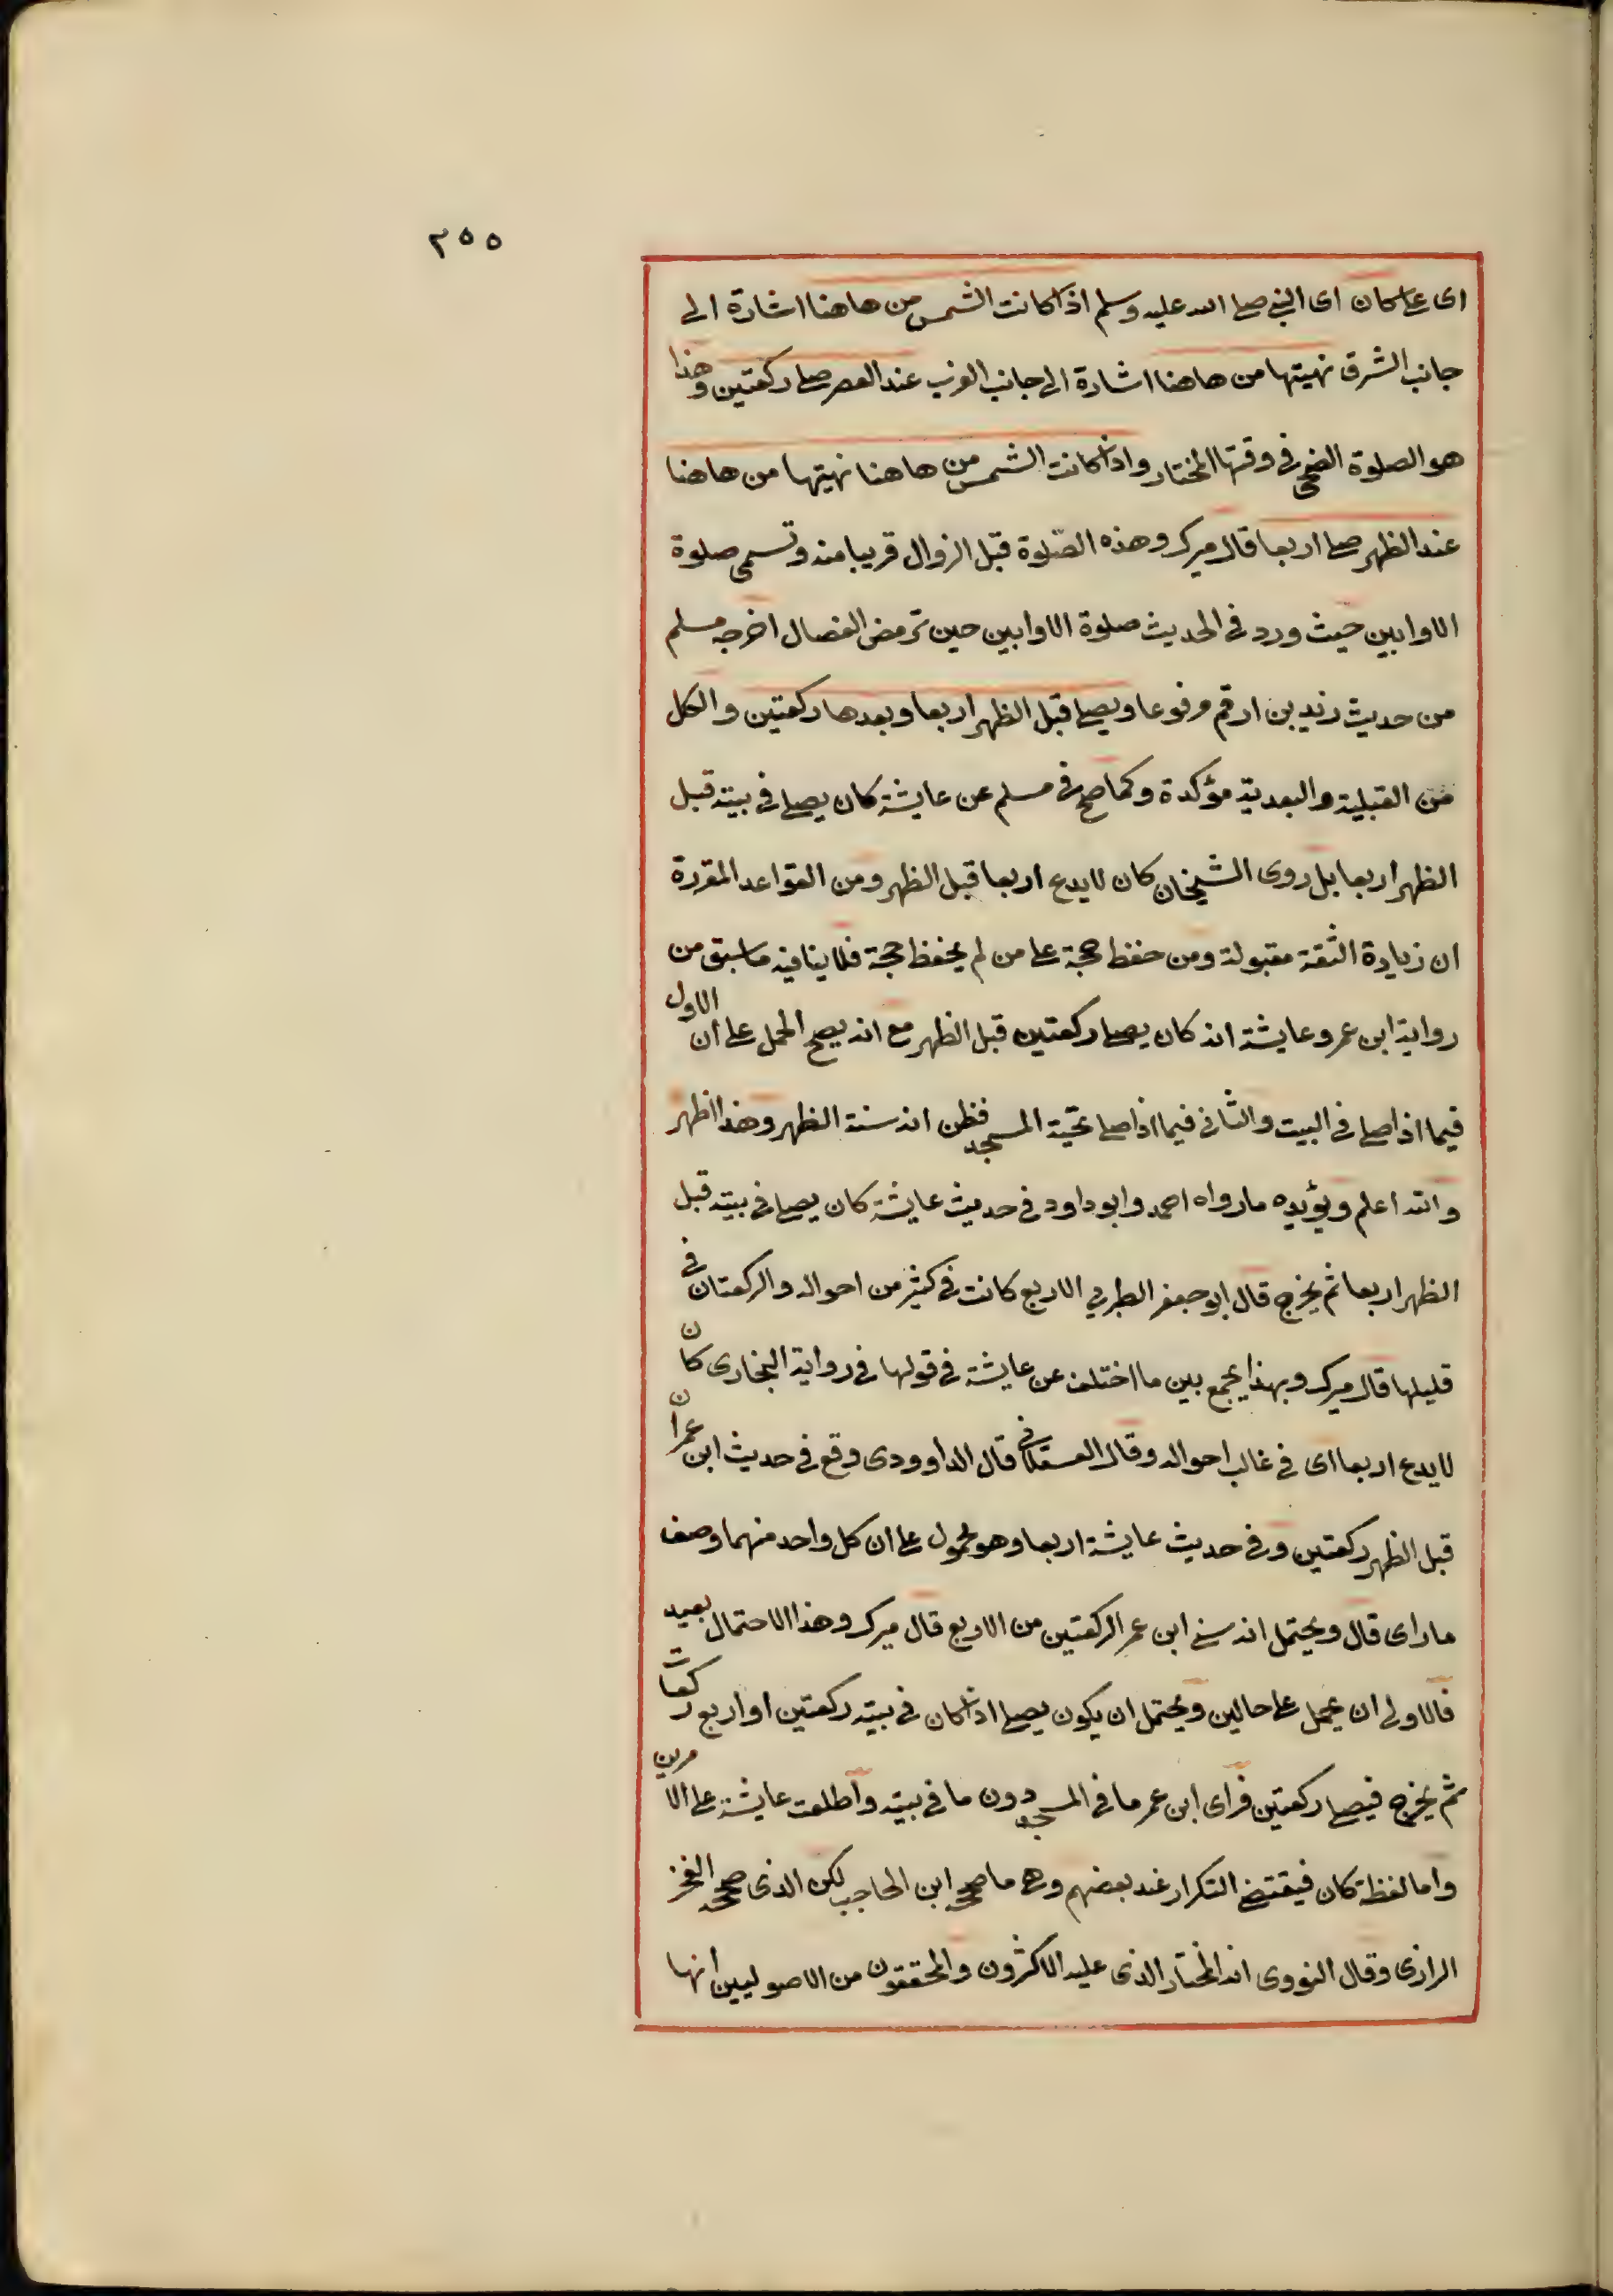 ٢٥٥
اى على كان اى النبي صلى الله عليه وسلم اذا كانت الشمس من هاهنا اشارة الى
جانب الشرق نهيتها من هاهنا اشارة الى جانب الغرب عند العصر صلى ركعتين وهذا
هو الصلوة الضحى في وقتها المختار واذا كانت الشمس من هاهنا نهيتها من هاهنا
عند الظهر صلى اربعا قال ميرك وهذه الصلوة قبل الزوال قريبا منه وتسمى صلوة
الاوابين حيث ورد في الحديث صلوة الاوابين حين ترمض الفصال اخرجه مسلم
من حديث زيد بن ارقم مرفوعا ويصلى قبل الظهر اربعا وبعدها ركعتين والكل
من القبلية والبعدية مؤكدة وكما صح في مسلم عن عايشة كان يصلى في بيته قبل
الظهر اربعا بل روى الشيخان كان لايدع اربعا قبل الظهر ومن القواعد المقررة
ان زيادة الثقة مقبولة ومن حفظ حجة على من لم يحفظ حجة فلا ينافيه ماسبق من
رواية ابن عمر وعايشة انه كان يصلى ركعتين قبل الظهر مع انه يصح الحمل على ان الاول
فيما اذا صلى في البيت والثاني فيما اذا صلى تحية المسجد فظن انه سنة الظهر وهذا اظهر
والله اعلم ويؤيده مارواه احمد وابوداود في حديث عايشة كان يصلى في بيته قبل
الظهر اربعا ثم يخرج قال ابو جعفر الطبري الاربع كانت في كثير من احواله والركعتان في
قليلها قال ميرك وبهذا يجمع بين ما اختلف عن عايشة في قولها في رواية البخارى كان
لايدع اربعا اى في غالب احواله وقال العسقلاني قال الداوودى وقع في حديث ابن عمر ان
قبل الظهر ركعتين وفي حديث عايشة اربعا وهو محمول على ان كل واحد منهما وصف
ماراى قال ويحتمل انه نسي ابن عمر الركعتين من الاربع قال ميرك وهذا الاحتمال بعيد
فالاولى ان يحمل على حالين ويحتمل ان يكون يصلى اذا كان في بيته ركعتين او اربع ركعات
ثم يخرج فيصلى ركعتين فراى ابن عمر ما في المسجد دون ما في بيته واطلعت عايشة على الامرين
واما لفظة كان فيقتضى التكرار عند بعضهم وهى ماصححه ابن الحاجب لكن الذى صححه الفخر
الرازى وقال النووى انه المختار الذى عليه الاكثرون والمحققون من الاصوليين انها